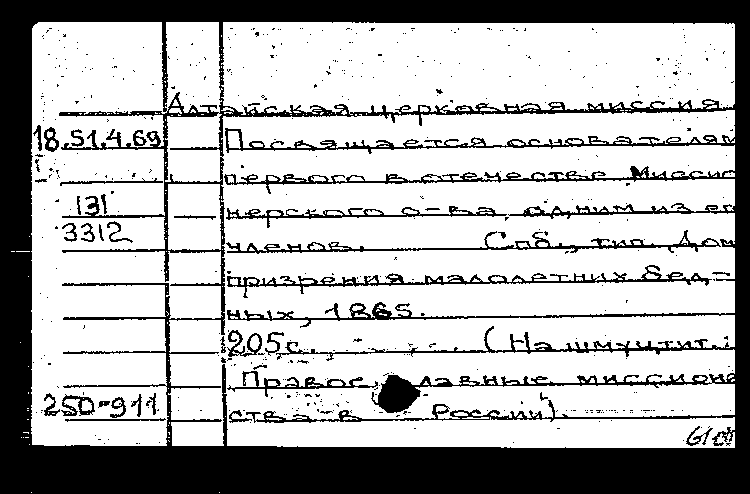 Алтайская церковная миссия
18.51.4.69 Посвящается основателям
первого в отечестве Миссио
131 нерского о-ва, одним из ег
3312 членов. Спб., тип. Дом
призрения малолетних бед-
ных, 1865.
205с. (На шмуцтит.:
Православные миссионе
250-911 ства в России).